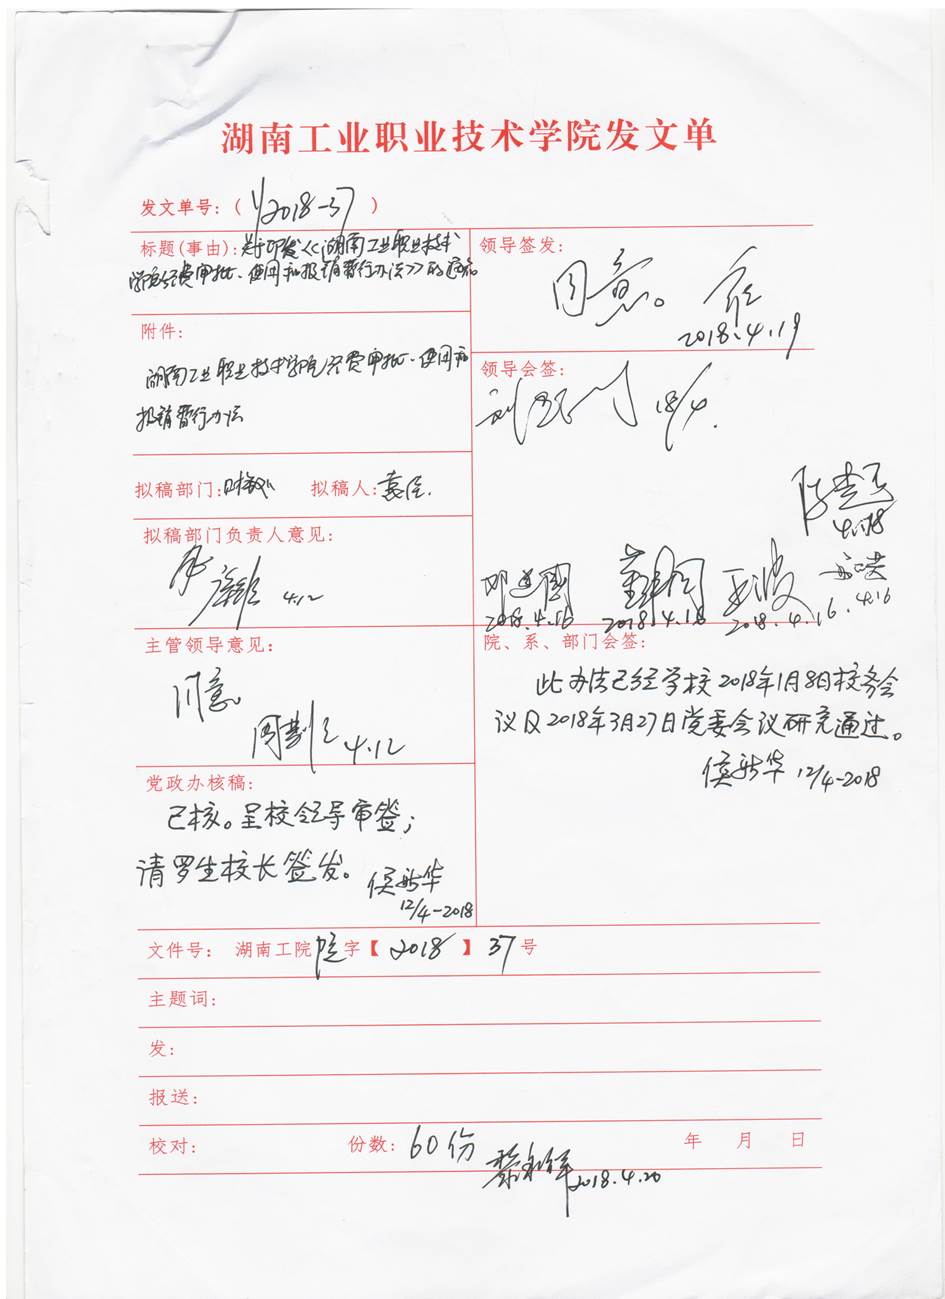 湖南工业职业技术学院发文单
发文单号：( 2018-37 )
标题(事由)：关于印发《湖南工业职业技术
学院经费审批、使用和报销暂行办法》的通知
领导签发：
同意。
2018.4.19
附件：
湖南工业职业技术学院经费审批、使用和
报销暂行办法
领导会签：
18/4.
拟稿部门： 拟稿人：
4.18
拟稿部门负责人意见：
4.12
2018.4.16 2018.4.16 2018.4.16 4.16
主管领导意见：
同意
4.12
院、系、部门会签：
此办法已经学校2018年1月8日校务会
议及2018年3月27日党委会议研究通过。
侯新华 12/4-2018
党政办核稿：
已核。呈校领导审签；
请罗生校长签发。
侯新华
12/4-2018
文件号： 湖南工院院字【 2018 】 37 号
主题词：
发：
报送：
校对： 份数： 60份 年 月 日
2018.4.20